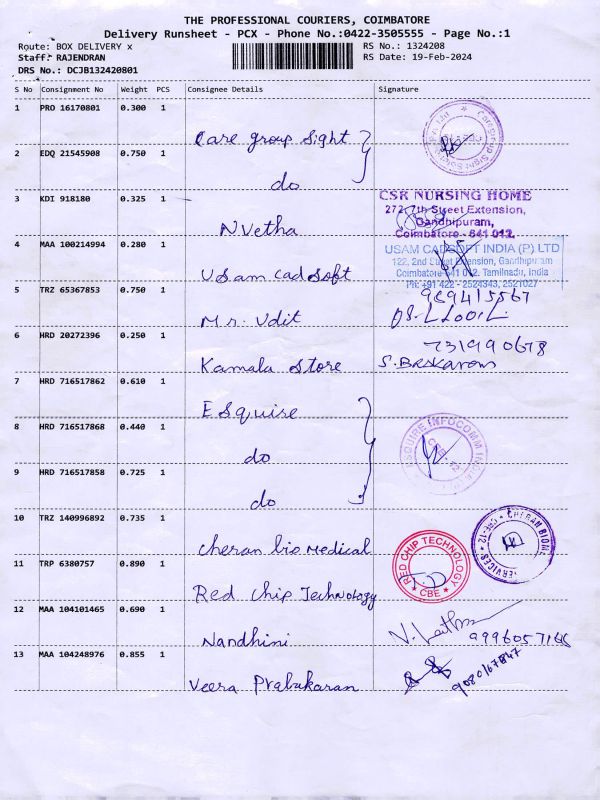 THE PROFESSIONAL COURIERS, COIMBATORE
Delivery Runsheet - PCX - Phone No.:0422-3505555 - Page No.:1
Route: BOX DELIVERY x RS No.: 1324208
Staff: RAJENDRAN RS Date: 19-Feb-2024
DRS No.: DCJB132420801
S No Consignment No Weight PCS Consignee Details Signature
1 PRO 16170801 0.300 1
Care group Sight
2 EDQ 21545908 0.750 1
do
3 KDI 918180 0.325 1 CSR NURSING HOME
272, 7th Street Extension,
Gandhipuram,
NVetha Coimbatore - 641 012.
4 MAA 100214994 0.280 1 USAM CADSOFT INDIA (P) LTD
122, 2nd Street Extension, Gandhipuram
Usam Cad Soft Coimbatore-641 012. Tamilnadu, India
PH: +91 422 - 2524343, 2521027
5 TRZ 65367853 0.750 1 989415567
Mr. Udit
6 HRD 20272396 0.250 1 7319990678
Kamala Store S. Baskaran
7 HRD 716517862 0.610 1
Esquise
8 HRD 716517868 0.440 1
do
9 HRD 716517858 0.725 1
do
10 TRZ 140996892 0.735 1
Cheran bio Medical
11 TRP 6380757 0.890 1 RED CHIP TECHNOLOGY
* CBE *
Red Chip Technology
12 MAA 104101465 0.690 1
Nandhini
13 MAA 104248976 0.855 1 9080167847
Veera Prabakaran